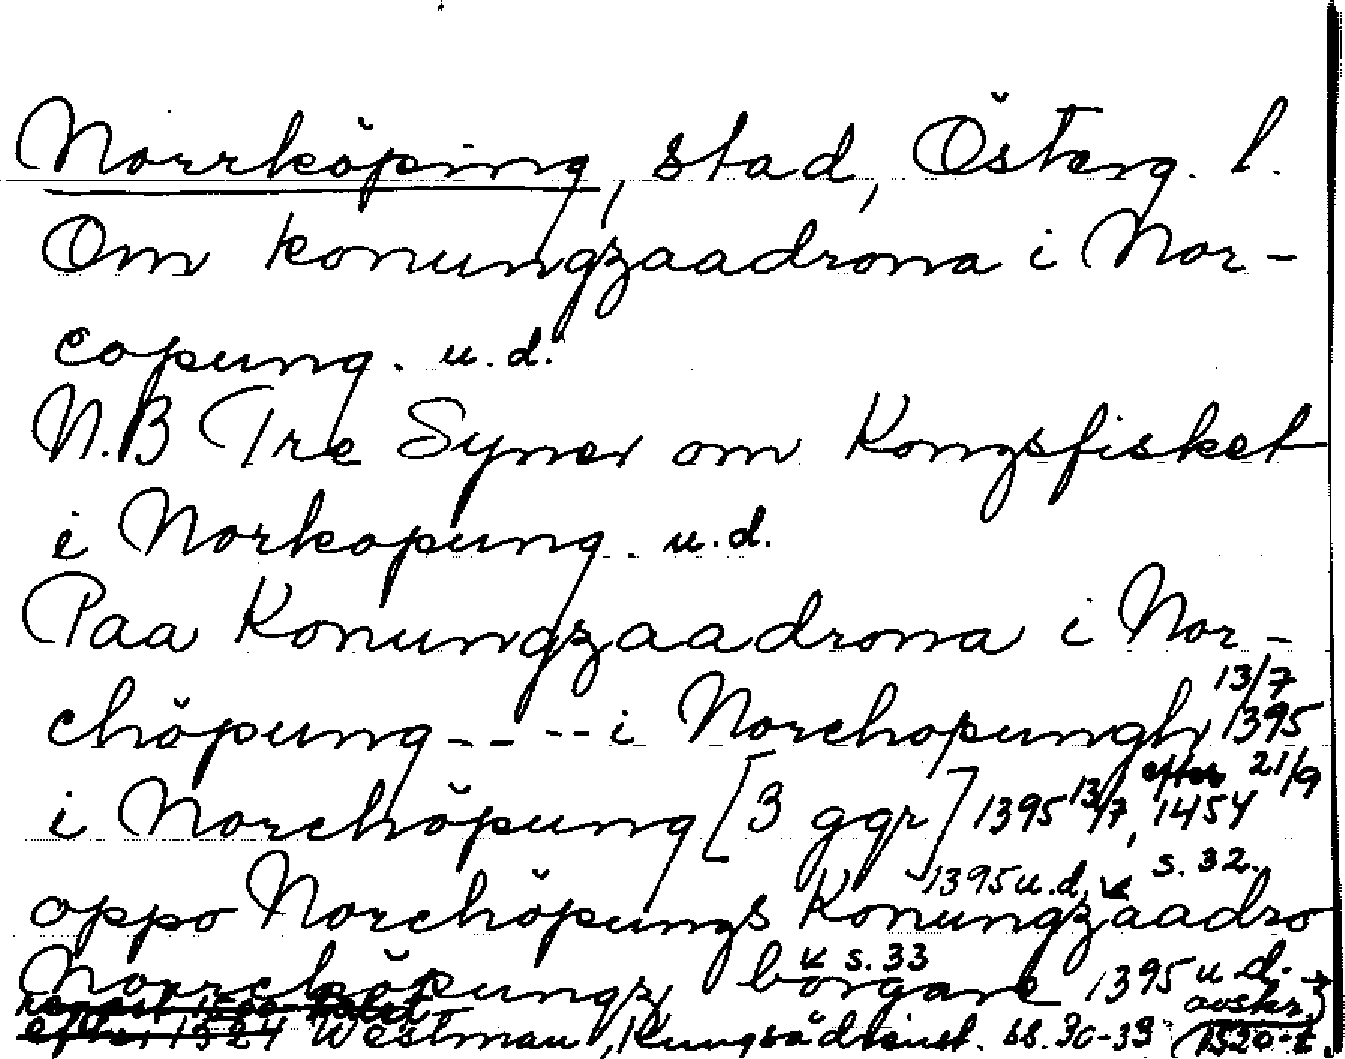 Norrköping, stad, Österg. l.
Om konungzaadrona i Nor-
copung. u.d.
N.B Tre Syner om Kongsfisket
i Norkopung. u.d.
Paa Konungzaadrona i Nor-
chöpung---- i Norchopungh 13/7 1395
i Norchöpung [3 ggr] 1395 13/7, 1454 efter 21/9
1395 u.d. s. 32.
oppo Norchöpungs Konungzaadro
Norrchöpungz borgare s. 33 1395 u.d.
efter 1524 Westman, Kungsådreinst. ss. 30-33 avskr. 1520-t.